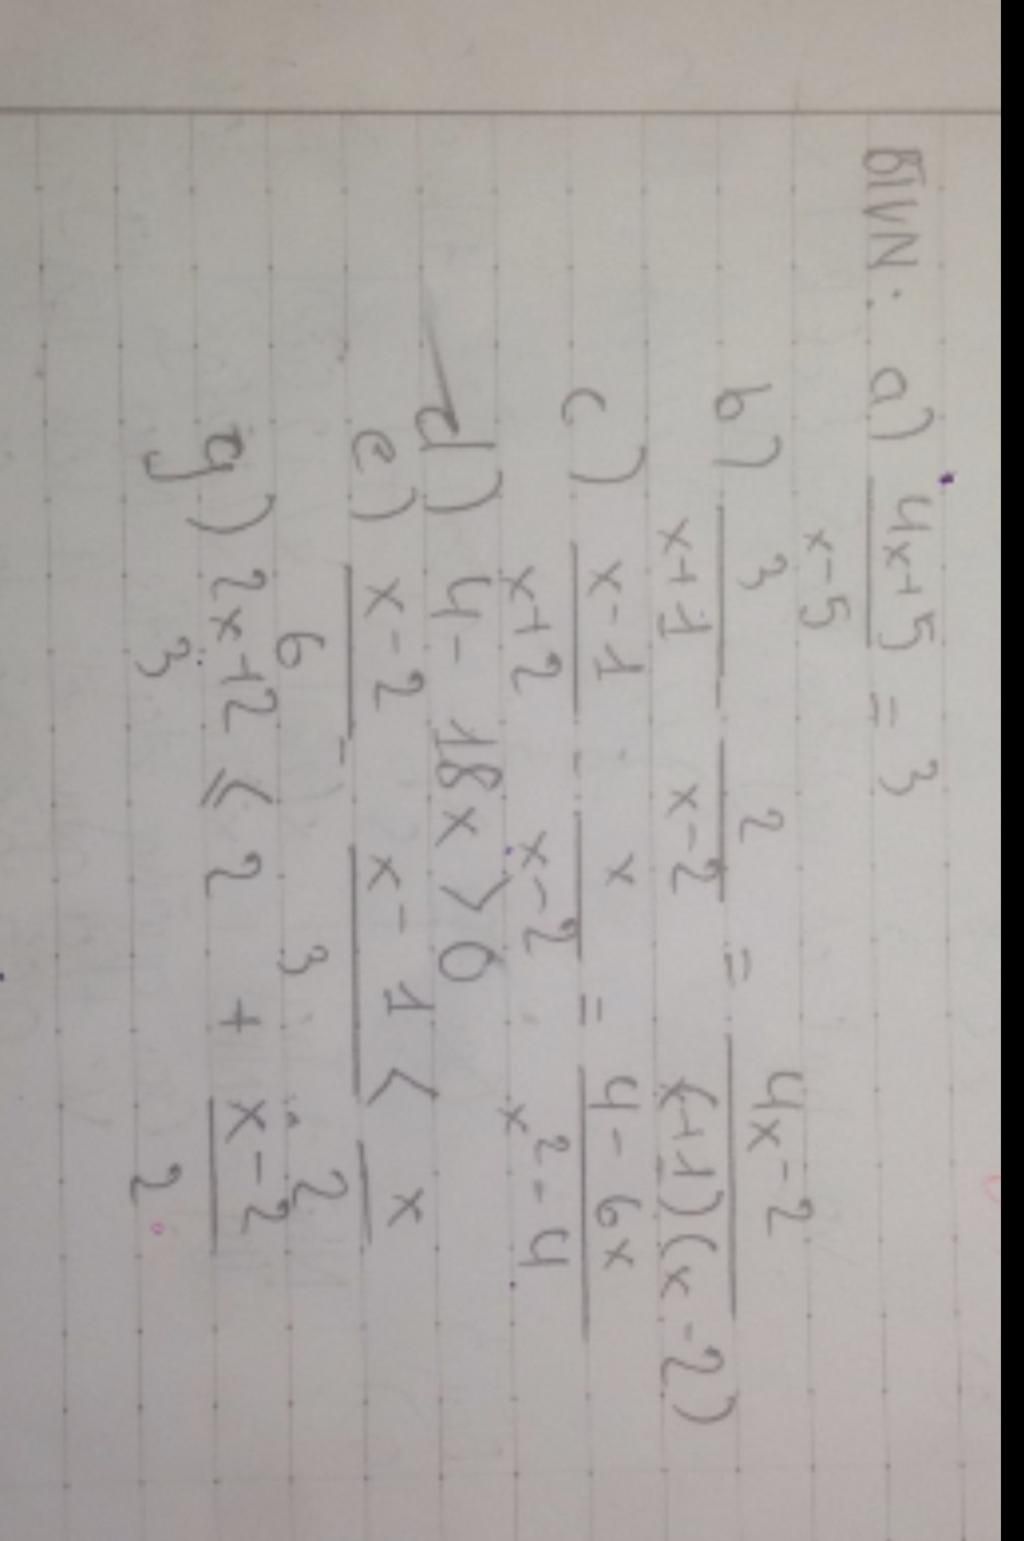 BTVN: a) (4x+5)/(x-5) = 3
b) 3/(x+1) - 2/(x-2) = (4x-2)/((x+1)(x-2))
c) (x-1)/(x+2) - x/(x-2) = (4-6x)/(x²-4)
d) 4 - 18x > 0
e) (x-2)/6 - (x-1)/3 < x/2
g) (2x+2)/3 ≤ 2 + (x-2)/2